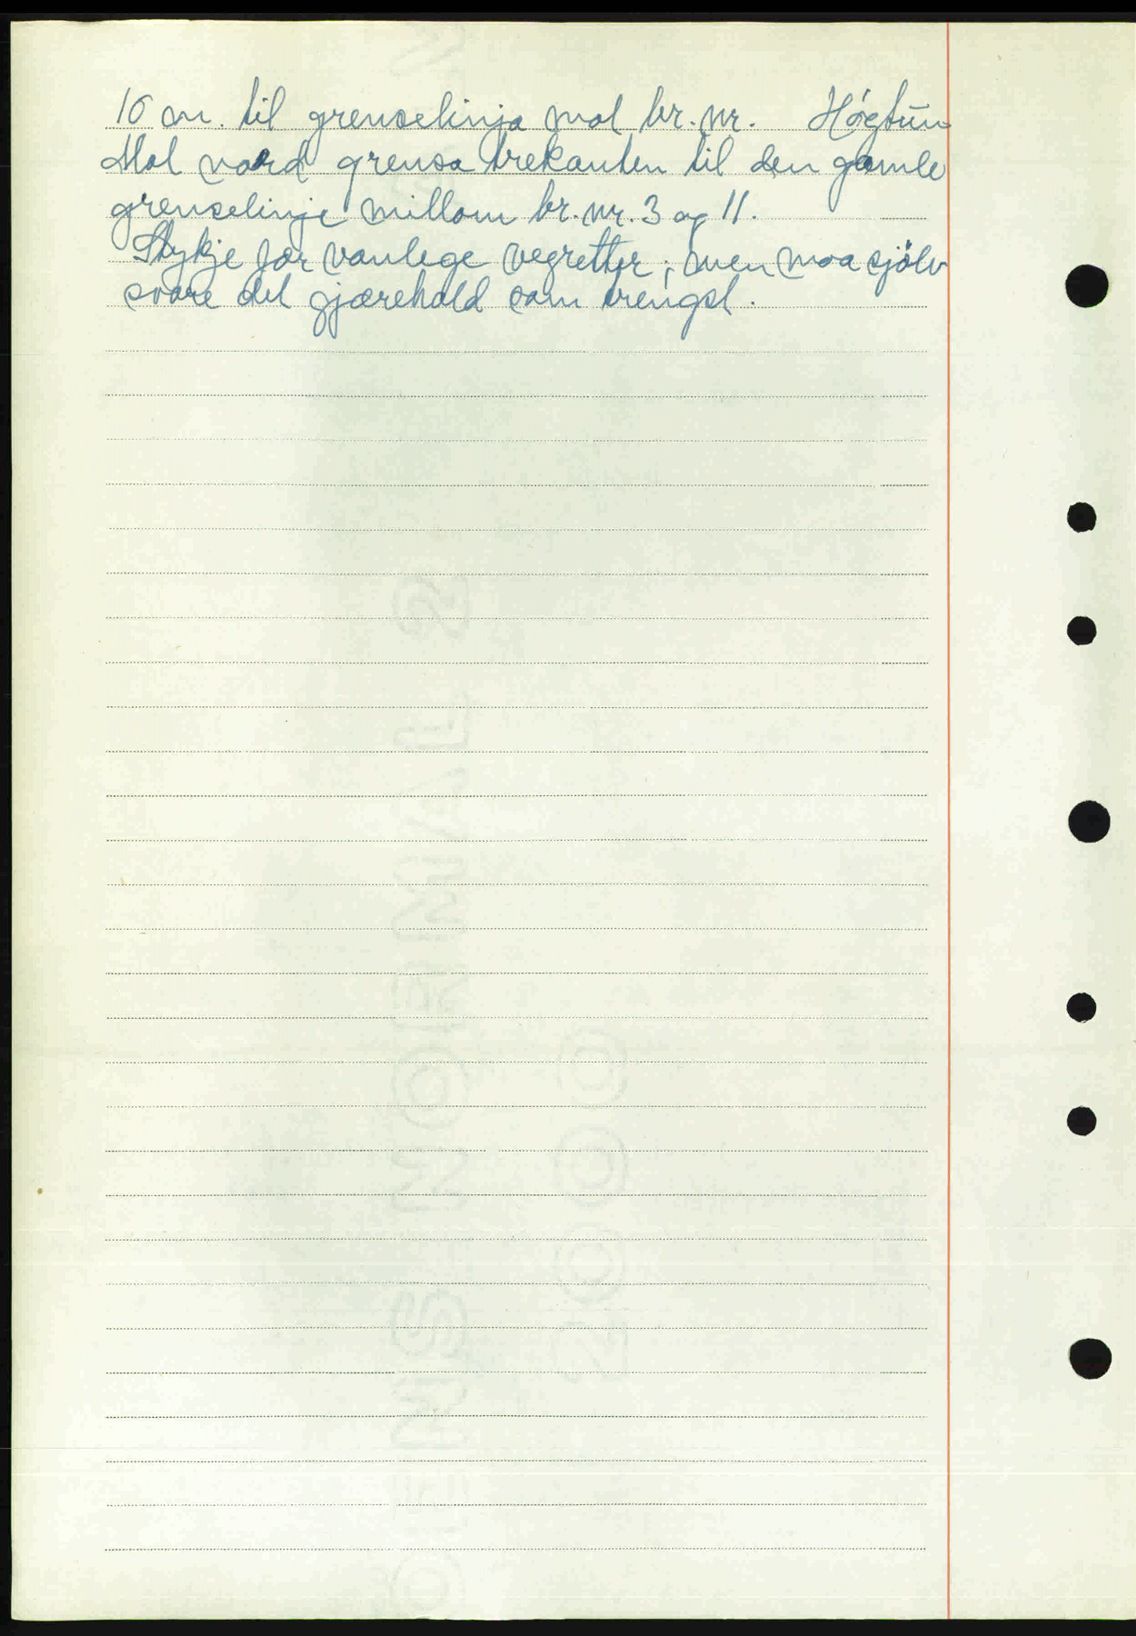 16 m. til grenselinja mot br. nr.   Høgtun
Mot nord grensa trekanten til den gamle
grenselinje millom br. nr. 3 og 11.
Stykje før vanlege vegretter; men maa sjölv
svare det gjærehald som trengst.